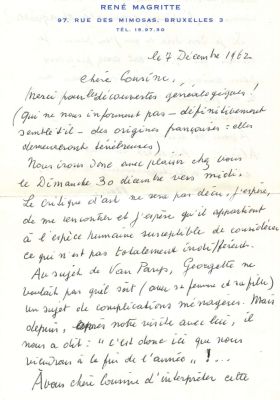 RENÉ MAGRITTE
97, RUE DES MIMOSAS, BRUXELLES 3
TÉL. 15.97.30
le 7 Décembre 1962
Chère Cousine,
Merci pour les découvertes généalogiques !
(qui ne nous informent pas – définitivement
semble-t-il – des origines françaises : elles
demeureront ténébreuses)
Nous irons donc avec plaisir chez vous
le Dimanche 30 décembre vers midi.
Le critique d'art ne sera pas déçu, j'espère,
de me rencontrer et j'espère qu'il appartient
à l'espèce humaine susceptible de considérer
ce qui n'est pas totalement indifférent.
Au sujet de Van Parys, Georgette ne
voulait pas qu'il soit (avec sa femme et sa fille)
un sujet de complications ménagères. Mais
depuis, après notre visite avec lui, il
nous a dit : "c'est donc ici que nous
viendrons à la fin de l'année" ! ...
À vous chère Cousine d'interpréter cette